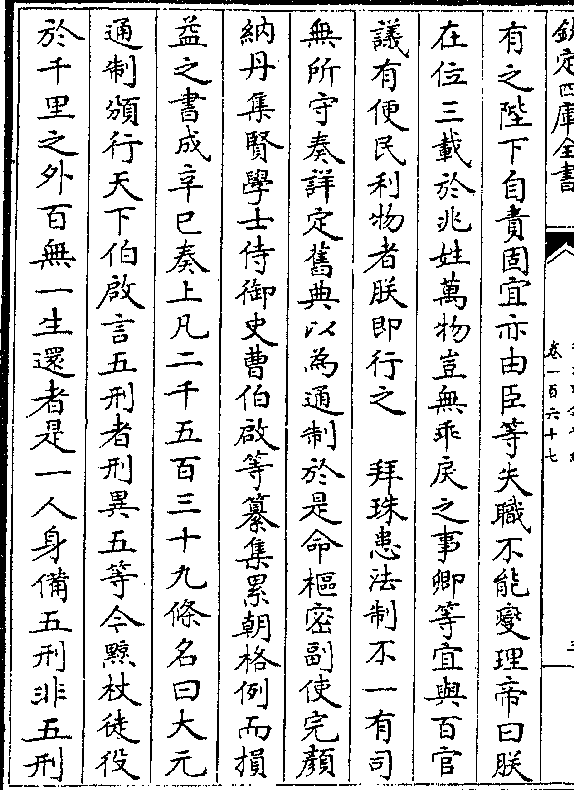 欽定四庫全書
卷一百六十七
有之陛下自責固宜亦由臣等失職不能燮理帝曰朕
在位三載於兆姓萬物豈無乖戾之事卿等宜與百官
議有便民利物者朕即行之　拜珠患法制不一有司
無所守奏詳定舊典以為通制於是命樞密副使完顏
納丹集賢學士侍御史曹伯啟等纂集累朝格例而損
益之書成辛巳奏上凡二千五百三十九條名曰大元
通制頒行天下伯啟言五刑者刑異五等今黥杖徒役
於千里之外百無一生還者是一人身備五刑非五刑